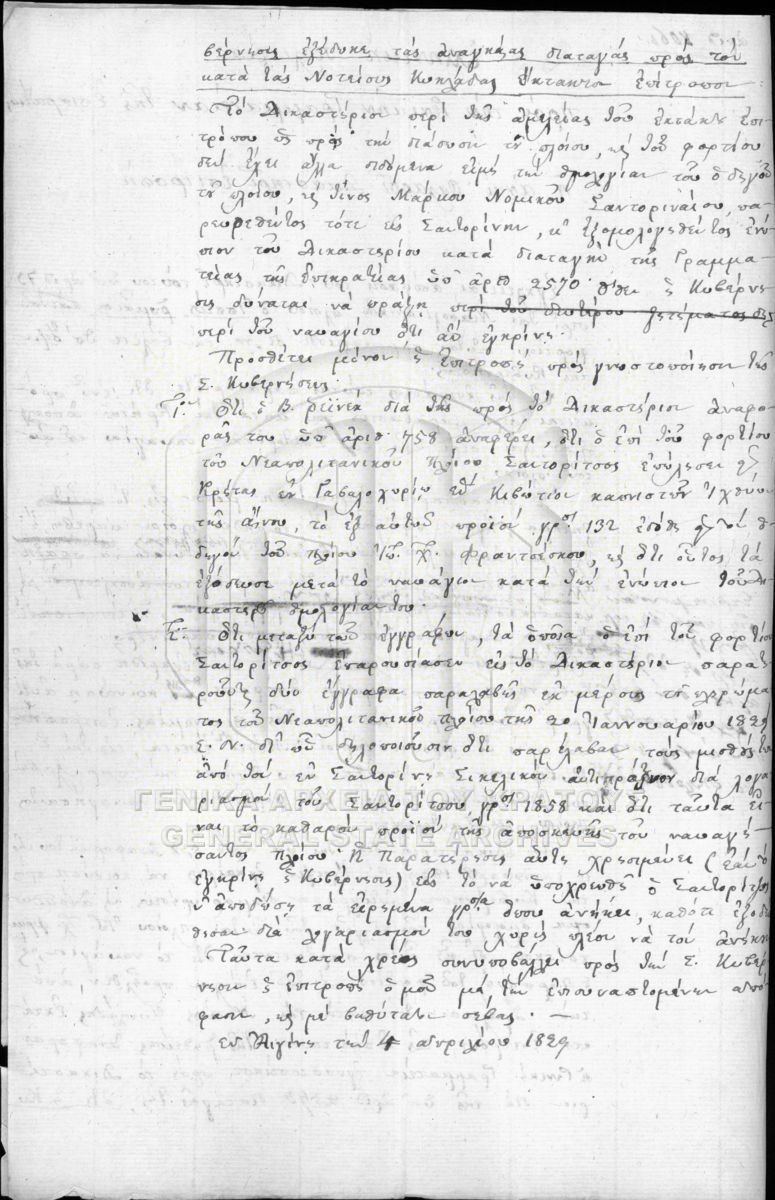 βέρνησις ἐξέδωκε τὰς ἀναγκαίας διαταγὰς πρὸς τὸν
κατὰ τὰς Νοτείους Κυκλάδας Ἔκτακτον ἐπίτροπον
Τὸ Δικαστήριον περὶ τῆς ἀμελείας τοῦ ἐκτάκτου ἐπι
τρόπου ὡς πρὸς τὴν διάσωσιν τοῦ πλοίου, καὶ τοῦ φορτίου
δὲν ἔχει ἄλλα δεδομένα εἰμὴ τὴν ὁμολογίαν τοῦ ὁδηγοῦ
τοῦ πλοίου, καὶ τινος Μάρκου Νομικοῦ Σαντοριναίου, πα
ρευρεθέντος τότε εἰς Σαντορίνην, κ' ἐξομολογηθέντος ἐνώ
πιον τοῦ Δικαστηρίου κατὰ διαταγὴν τῆς Γραμμα
τείας τῆς Ἐπικρατείας ὑπ' ἀριθ 2570 ὅθεν ἡ Κυβέρνη
σις δύναται νὰ πράξῃ περὶ τοῦ δευτέρου ζητήματος
περὶ τοῦ ναυαγίου ὅτι ἂν ἐγκρίνῃ.
Προσθέτει μόνον ἡ ἐπιτροπὴ πρὸς γνωστοποίησιν τῆς
Σ. Κυβερνήσεως.
Ὅτι ὁ Β. διὰ τῆς πρὸς τὸ Δικαστήριον ἀναφο
ρᾶς του ὑπ' ἀριθ. 758 ἀναφέρει, ὅτι ὁ ἐπὶ τοῦ φορτίου
τοῦ Νεαπολιτανικοῦ πλοίου Σαντορίτσος ἐπώλησεν
Κρήτας ἐν κιβώτιον ἰχθύων
τὸ ἐξ αὐτοῦ προϊὸν γρό 132 ἐδόθη
δηγὸν τοῦ πλοίου Φραντσέσκου, καὶ ὅτι οὗτος τὰ
ἐξόδευσε μετὰ τὸ ναυάγιον κατὰ τὴν ἐνώπιον τοῦ Δι
καστηρ ὁμολογίαν του.
Ὅτι μεταξὺ τῶν ἐγγράφων, τὰ ὁποῖα ὁ ἐπὶ τοῦ φορτίου
Σαντορίτσος ἐπαρουσίασεν εἰς τὸ Δικαστήριον παρατη
ροῦνται δύο ἔγγραφα παραλαβῆς ἐκ μέρους τοῦ πληρώμα
τος τοῦ Νεαπολιτανικοῦ πλοίου τῆς 20 Ἰαννουαρίου 1829
Ε. Ν. δι' ὧν δηλοποιοῦσιν ὅτι παρέλαβαν τοὺς μισθούς των
ἀπὸ τὸν ἐν Σαντορίνῃ Σικελικὸν ἀντιπράξενον διὰ λογα
ριασμὸν τοῦ Σαντορίτσου γρό 1858 καὶ ὅτι ταῦτα εἶ
ναι τὸ καθαρὸν προϊὸν τῆς ἀποσκευῆς τοῦ ναυαγή
σαντος πλοίου. Ἡ Παρατήρησις αὕτη χρησιμεύει (ἐὰν τὸ
ἐγκρίνῃ ἡ Κυβέρνησις) εἰς τὸ νὰ ὑποχρεωθῇ ὁ Σαντορίτσος
ν' ἀποδώσῃ τὰ εἰρημένα γρόσια ὅπου ἀνήκει, καθότι ἐξοδεύ
θησαν διὰ λογαριασμόν του χωρὶς πλέον νὰ τὸν ἀνήκουν
Ταῦτα κατὰ χρέος συνυποβάλλει πρὸς τὴν Σ. Κυβέρ
νησιν ἡ ἐπιτροπὴ ὁμοῦ μὲ τὴν ἐπισυναπτομένην ἀπό
φασιν, καὶ μὲ βαθύτατον σέβας. —
ἐν Αἰγίνῃ τὴν 4 ἀπριλίου 1829
ΓΕΝΙΚΑ ΑΡΧΕΙΑ ΤΟΥ ΚΡΑΤΟΥΣ
GENERAL STATE ARCHIVES